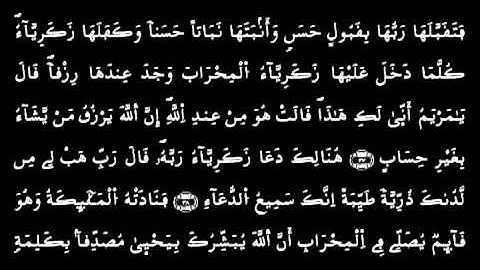 فَتَقَبَّلَهَا رَبُّهَا بِقَبُولٍ حَسَنٖ وَأَنۢبَتَهَا نَبَاتاً حَسَناٗ وَكَفَلَهَا زَكَرِيَّآءُۖ
كُلَّمَا دَخَلَ عَلَيْهَا زَكَرِيَّآءُ اُ۬لْمِحْرَابَ وَجَدَ عِندَهَا رِزْقاٗۖ قَالَ
يَٰمَرْيَمُ أَنّ۪يٰ لَكِ هَٰذَاۖ قَالَتْ هُوَ مِنْ عِندِ اِ۬للَّهِۖ إِنَّ اَ۬للَّهَ يَرْزُقُ مَنْ يَّشَآءُ
بِغَيْرِ حِسَابٍۖ ٣٧ هُنَالِكَ دَعَا زَكَرِيَّآءُ رَبَّهُۥۖ قَالَ رَبِّ هَبْ لِے مِن
لَّدُنكَ ذُرِّيَّةٗ طَيِّبَةً اِنَّكَ سَمِيعُ اُ۬لدُّعَآءِۖ ٣٨ فَنَادَتْهُ اُ۬لْمَلَٰٓئِكَةُ وَهُوَ
قَآئِمٞ يُصَلِّے فِے اِ۬لْمِحْرَابِ أَنَّ اَ۬للَّهَ يُبَشِّرُكَ بِيَحْي۪يٰ مُصَدِّقاَۢ بِكَلِمَةٖ